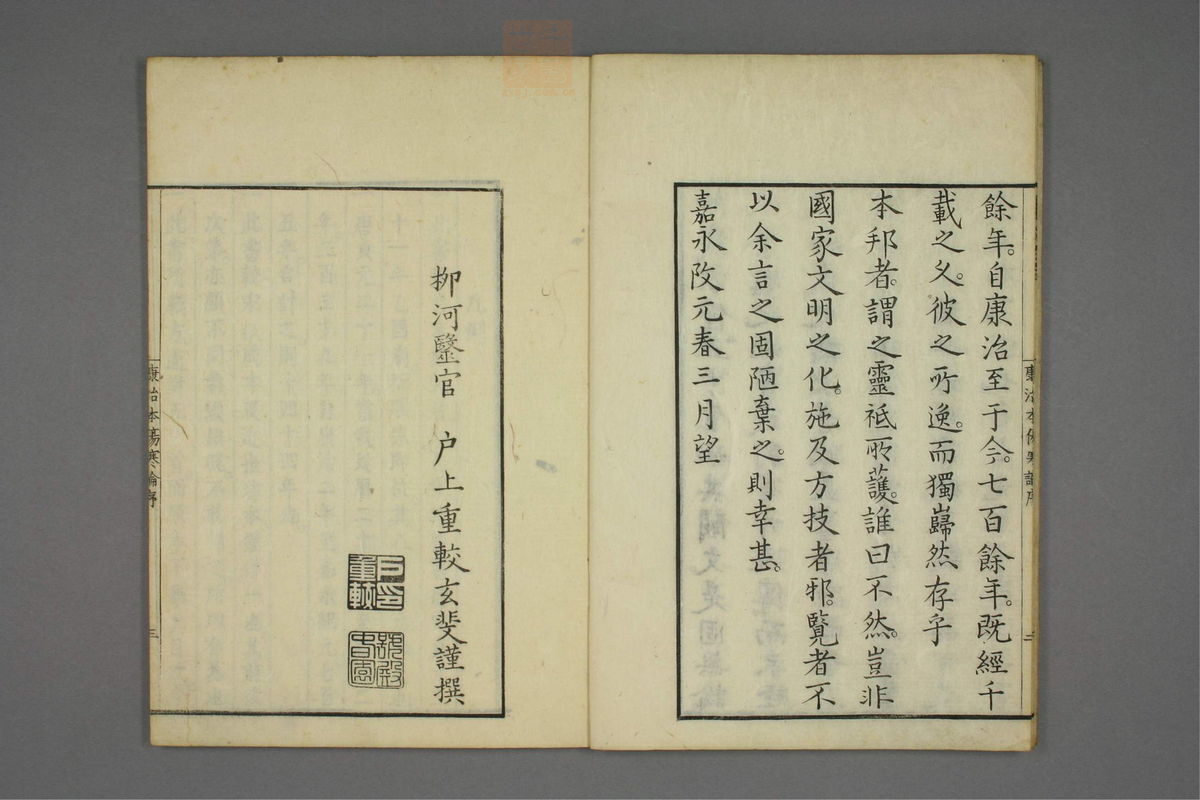 餘年。自康治至于今。七百餘年。既經千
載之久。彼之所逸。而獨巋然存乎
本邦者。謂之靈祗所護。誰曰不然。豈非
國家文明之化。施及方技者邪。覽者不
以余言之固陋棄之。則幸甚。
嘉永改元春三月望
柳河毉官 户上重較玄斐謹撰
康治本傷寒論序
二
康治本傷寒論序
三